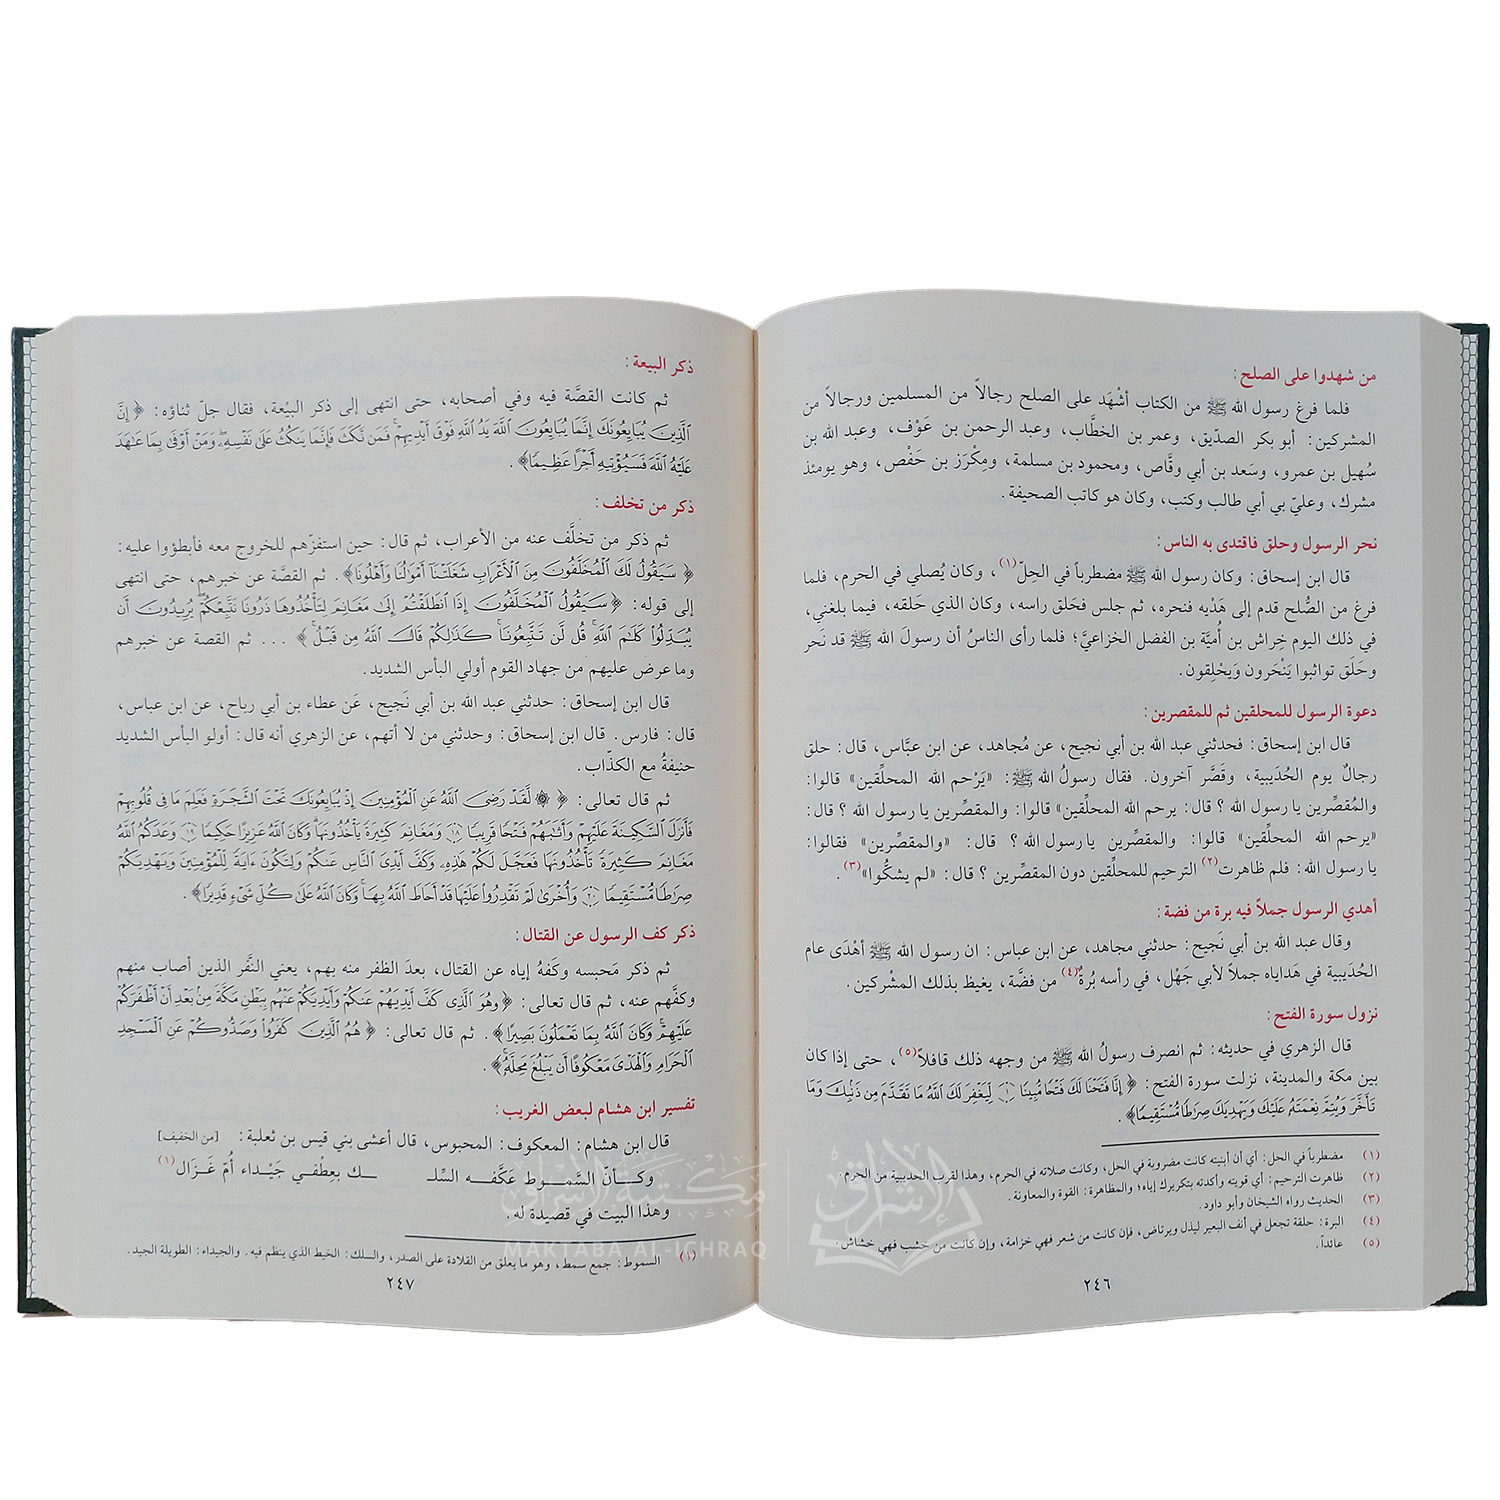 من شهدوا على الصلح :
فلما فرغ رسول الله ﷺ من الكتاب أشْهَد على الصلح رجالاً من المسلمين ورجالاً من
المشركين: أبو بكر الصدّيق، وعمر بن الخطَّاب، وعبد الرحمن بن عَوْف، وعبد الله بن
سُهيل بن عمرو، وسَعد بن أبي وقَّاص، ومحمود بن مسلمة، ومِكْرَز بن حَفْص، وهو يومئذ
مشرك، وعليّ بي أبي طالب وكتب، وكان هو كاتب الصحيفة .
نحر الرسول وحلق فاقتدى به الناس:
قال ابن إسحاق: وكان رسول الله ﷺ مضطرباً في الحِلّ(١)، وكان يُصلي في الحرم، فلما
فرغ من الصُّلح قدم إلى هَدْيه فنحره، ثم جلس فحَلق راسه، وكان الذي حَلقه، فيما بلغني،
في ذلك اليوم خِراش بن أُميَّة بن الفضل الخزاعيّ؛ فلما رأى الناسُ أن رسولَ الله ﷺ قد نَحر
وحَلَق تواثبوا يَنْحَرون وَيحْلِقون.
دعوة الرسول للمحلقين ثم للمقصرين:
قال ابن إسحاق: فحدثني عبد الله بن أبي نجيح، عن مُجاهد، عن ابن عبَّاس، قال: حلق
رجالٌ يوم الحُدَيبية، وقَصَّر آخرون. فقال رسولُ الله ﷺ: «يَرْحم الله المحلِّقين» قالوا:
والمُقصِّرين يا رسول الله ؟ قال: يرحم الله المحلِّقين» قالوا: والمقصِّرين يا رسول الله ؟ قال:
«يرحم الله المحلِّقين» قالوا: والمقصِّرين يا رسول الله ؟ قال: «والمقصِّرين» فقالوا:
يا رسول الله: فلم ظاهرت(٢) الترحيم للمحلِّقين دون المقصِّرين ؟ قال: «لم يشكُّوا»(٣) .
أهدي الرسول جملاً فيه برة من فضة:
وقال عبد الله بن أبي نَجيح: حدثني مجاهد، عن ابن عباس: ان رسول الله ﷺ أهْدَى عام
الحُدَيبية في هَداياه جملاً لأبي جَهْل، في رأسه بُرةٌ(٤) من فضَّة، يغيظ بذلك المشْركين.
نزول سورة الفتح:
قال الزهري في حديثه: ثم انصرف رسولُ الله ﷺ من وجهه ذلك قافلاً(٥)، حتى إذا كان
بين مكة والمدينة، نزلت سورة الفتح: ﴿ إِنَّا فَتَحْنَا لَكَ فَتْحًا مُّبِينًا ۝١ لِّيَغْفِرَ لَكَ ٱللَّهُ مَا تَقَدَّمَ مِن ذَنۢبِكَ وَمَا
تَأَخَّرَ وَيُتِمَّ نِعْمَتَهُ عَلَيْكَ وَيَهْدِيَكَ صِرَٰطًا مُّسْتَقِيمًا﴾ .
(١) مضطرباً في الحل: أي أن أبنيته كانت مضروبة في الحل، وكانت صلاته في الحرم، وهذا لقرب الحديبية من الحرم.
(٢) ظاهرت الترحيم: أي قويته وأكدته بتكريرك إياه؛ والمظاهرة: القوة والمعاونة.
(٣) الحديث رواه الشيخان وأبو داود.
(٤) البرة: حلقة تجعل في أنف البعير ليذل ويرتاض، فإن كانت من شعر فهي خزامة، وإن كانت من خشب فهي خشاش.
(٥) عائداً.
٢٤٦
ذكر البيعة :
ثم كانت القصَّة فيه وفي أصحابه، حتى انتهى إلى ذكر البيْعة، فقال جلّ ثناؤه: ﴿ إِنَّ
ٱلَّذِينَ يُبَايِعُونَكَ إِنَّمَا يُبَايِعُونَ ٱللَّهَ يَدُ ٱللَّهِ فَوْقَ أَيْدِيهِمْ ۚ فَمَن نَّكَثَ فَإِنَّمَا يَنكُثُ عَلَىٰ نَفْسِهِۦ ۖ وَمَنْ أَوْفَىٰ بِمَا عَٰهَدَ
عَلَيْهُ ٱللَّهَ فَسَيُؤْتِيهِ أَجْرًا عَظِيمًا﴾ .
ذكر من تخلف:
ثم ذكر من تخلَّف عنه من الأعراب، ثم قال: حين استفزّهم للخروج معه فأبطؤوا عليه:
﴿ سَيَقُولُ لَكَ ٱلْمُخَلَّفُونَ مِنَ ٱلْأَعْرَابِ شَغَلَتْنَآ أَمْوَٰلُنَا وَأَهْلُونَا﴾. ثم القصَّة عن خبرهم، حتى انتهى
إلى قوله: ﴿ سَيَقُولُ ٱلْمُخَلَّفُونَ إِذَا ٱنطَلَقْتُمْ إِلَىٰ مَغَانِمَ لِتَأْخُذُوهَا ذَرُونَا نَتَّبِعْكُمْ ۖ يُرِيدُونَ أَن
يُبَدِّلُوا۟ كَلَٰمَ ٱللَّهِ ۚ قُل لَّن تَتَّبِعُونَا كَذَٰلِكُمْ قَالَ ٱللَّهُ مِن قَبْلُ ۖ﴾ ... ثم القصة عن خبرهم
وما عرض عليهم من جهاد القوم أولي البأس الشديد.
قال ابن إسحاق: حدثني عبد الله بن أبي نَجيح، عَن عطاء بن أبي رباح، عن ابن عباس،
قال: فارس. قال ابن إسحاق: وحدثني من لا أتهم، عن الزهري أنه قال: أولو البأس الشديد
حنيفةُ مع الكذّاب.
ثم قال تعالى: ﴿ ۞ لَّقَدْ رَضِىَ ٱللَّهُ عَنِ ٱلْمُؤْمِنِينَ إِذْ يُبَايِعُونَكَ تَحْتَ ٱلشَّجَرَةِ فَعَلِمَ مَا فِى قُلُوبِهِمْ
فَأَنزَلَ ٱلسَّكِينَةَ عَلَيْهِمْ وَأَثَٰبَهُمْ فَتْحًا قَرِيبًا ۝١٨ وَمَغَانِمَ كَثِيرَةً يَأْخُذُونَهَا ۗ وَكَانَ ٱللَّهُ عَزِيزًا حَكِيمًا ۝١٩ وَعَدَكُمُ ٱللَّهُ
مَغَانِمَ كَثِيرَةً تَأْخُذُونَهَا فَعَجَّلَ لَكُمْ هَٰذِهِۦ وَكَفَّ أَيْدِىَ ٱلنَّاسِ عَنكُمْ وَلِتَكُونَ ءَايَةً لِّلْمُؤْمِنِينَ وَيَهْدِيَكُمْ
صِرَٰطًا مُّسْتَقِيمًا ۝٢٠ وَأُخْرَىٰ لَمْ تَقْدِرُوا۟ عَلَيْهَا قَدْ أَحَاطَ ٱللَّهُ بِهَا ۚ وَكَانَ ٱللَّهُ عَلَىٰ كُلِّ شَىْءٍ قَدِيرًا﴾ .
ذكر كف الرسول عن القتال:
ثم ذكر مَحبسه وكَفهُ إياه عن القتال، بعدَ الظفر منه بهم، يعني النَّفر الذين أصاب منهم
وكفَّهم عنه، ثم قال تعالى: ﴿وَهُوَ ٱلَّذِى كَفَّ أَيْدِيَهُمْ عَنكُمْ وَأَيْدِيَكُمْ عَنْهُم بِبَطْنِ مَكَّةَ مِنۢ بَعْدِ أَنْ أَظْفَرَكُمْ
عَلَيْهِمْ ۚ وَكَانَ ٱللَّهُ بِمَا تَعْمَلُونَ بَصِيرًا﴾. ثم قال تعالى: ﴿ هُمُ ٱلَّذِينَ كَفَرُوا۟ وَصَدُّوكُمْ عَنِ ٱلْمَسْجِدِ
ٱلْحَرَامِ وَٱلْهَدْىَ مَعْكُوفًا أَن يَبْلُغَ مَحِلَّهُۥ ۚ﴾ .
تفسير ابن هشام لبعض الغريب:
قال ابن هشام: المعكوف: المحبوس، قال أعشى بني قيس بن ثعلبة: [من الخفيف]
وكـأنّ السَّمـوط عَكَّفـه السِّلـ ـك بعِطفـي جَيْـداء أُمّ غَـزَال(١)
وهذا البيت في قصيدة له .
(١) السموط: جمع سمط، وهو ما يعلق من القلادة على الصدر، والسلك: الخيط الذي ينظم فيه. والجيداء: الطويلة الجيد.
٢٤٧
مكتبة الإشراق
MAKTABA AL-ICHRAQ
الإشراق